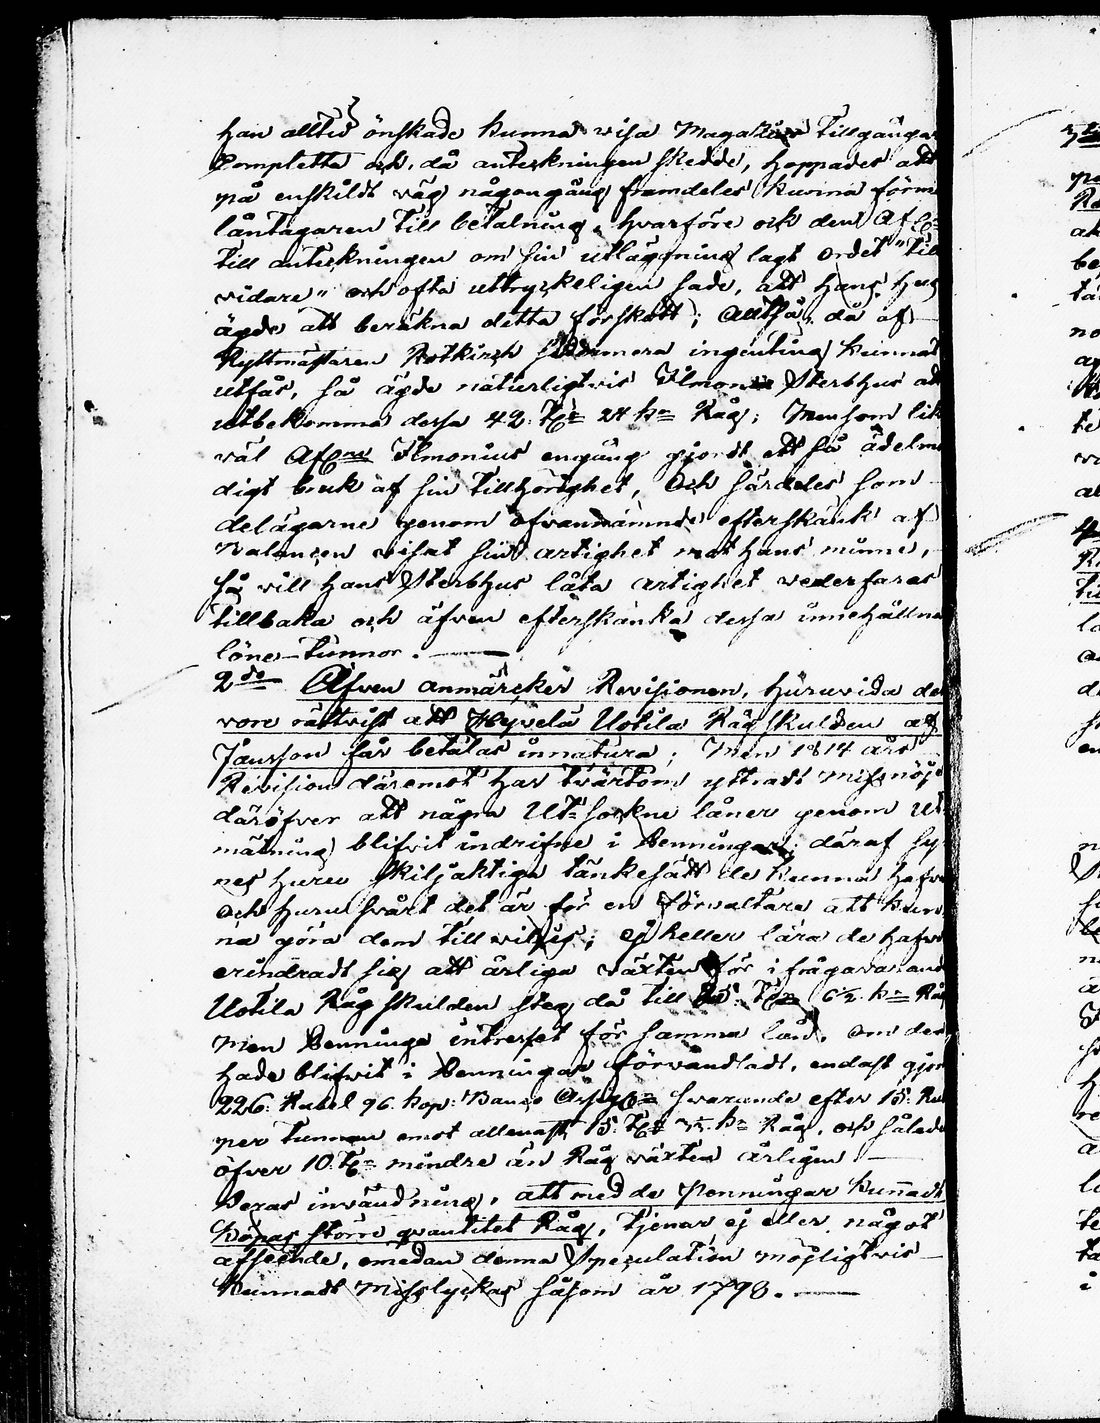 han alltid önskade kunna visa Magazins tillgångar
Completta och, då anteckningen skedde, hoppades att
på enskildt väg någongång framdeles kunna förm
låntagaren till betalning, hvarföre och den Afl:
till anteckningen om sin utläggning lagt ordet "till
vidare" och ofta uttryckeligen sade, att hans Hus
ägde att beräkna detta förskott; Alltså, då af
Ryttmästaren Rotkirch sedermera ingenting kunnat
utfås, så ägde naturligtvis Ilmonis Sterbhus att
utbekomma dessa 42 T:r 24 k:r Råg; Men som lik
väl Afl:ne Ilmonius engång gjordt ett så ädelmo
digt bruk af sin tillhörighet, Och särdeles som
delägarne genom ofvannämnde efterskänk af
Balancen visat sin artighet mot hans minne,
så vill hans Sterbhus låta artighet vederfaras
tillbaka och äfven efterskänka dessa innehållna
löne-tunnor.
2do Äfven anmärcker Revisionen, huruvida det
vore rättvist att Hyvelä Uotila Rågskulden af
Jansson får betalas innatura; Men 1814 års
Revision däremot har tvärtom yttradt missnöje
däröfver att några Ut-Sockne låner genom Ut
mätning blifvit indrifne i Penningar; däraf sy
nes huru skiljaktiga tänkesätt de kunna hafva
och huru svårt det är för en Förvaltare att kun
na göra dem till viljes; ej heller lära de hafva
erindradt sig att årliga växten för ifrågavarand
Uotila Råg skulden steg då till 25 T:r 6 1/2 k:r Råg
Men Penninge intresset för samma lån, om det
hade blifvit i Penningar förvandladt, endast gjort
226 Rubel 96 kop: Banco Assign: svarande efter 15 Rub
per tunnan emot allenast 15 T:r k:r Råg, och således
öfver 10 T:r mindre än Råg växten årligen.
Deras invändning, att med de Penningar kunnadt
köpas större quantitet Råg, tjenar ej eller något
afseende, emedan denna Speculation möjligtvis
kunnadt Misslyckas såsom år 1798.